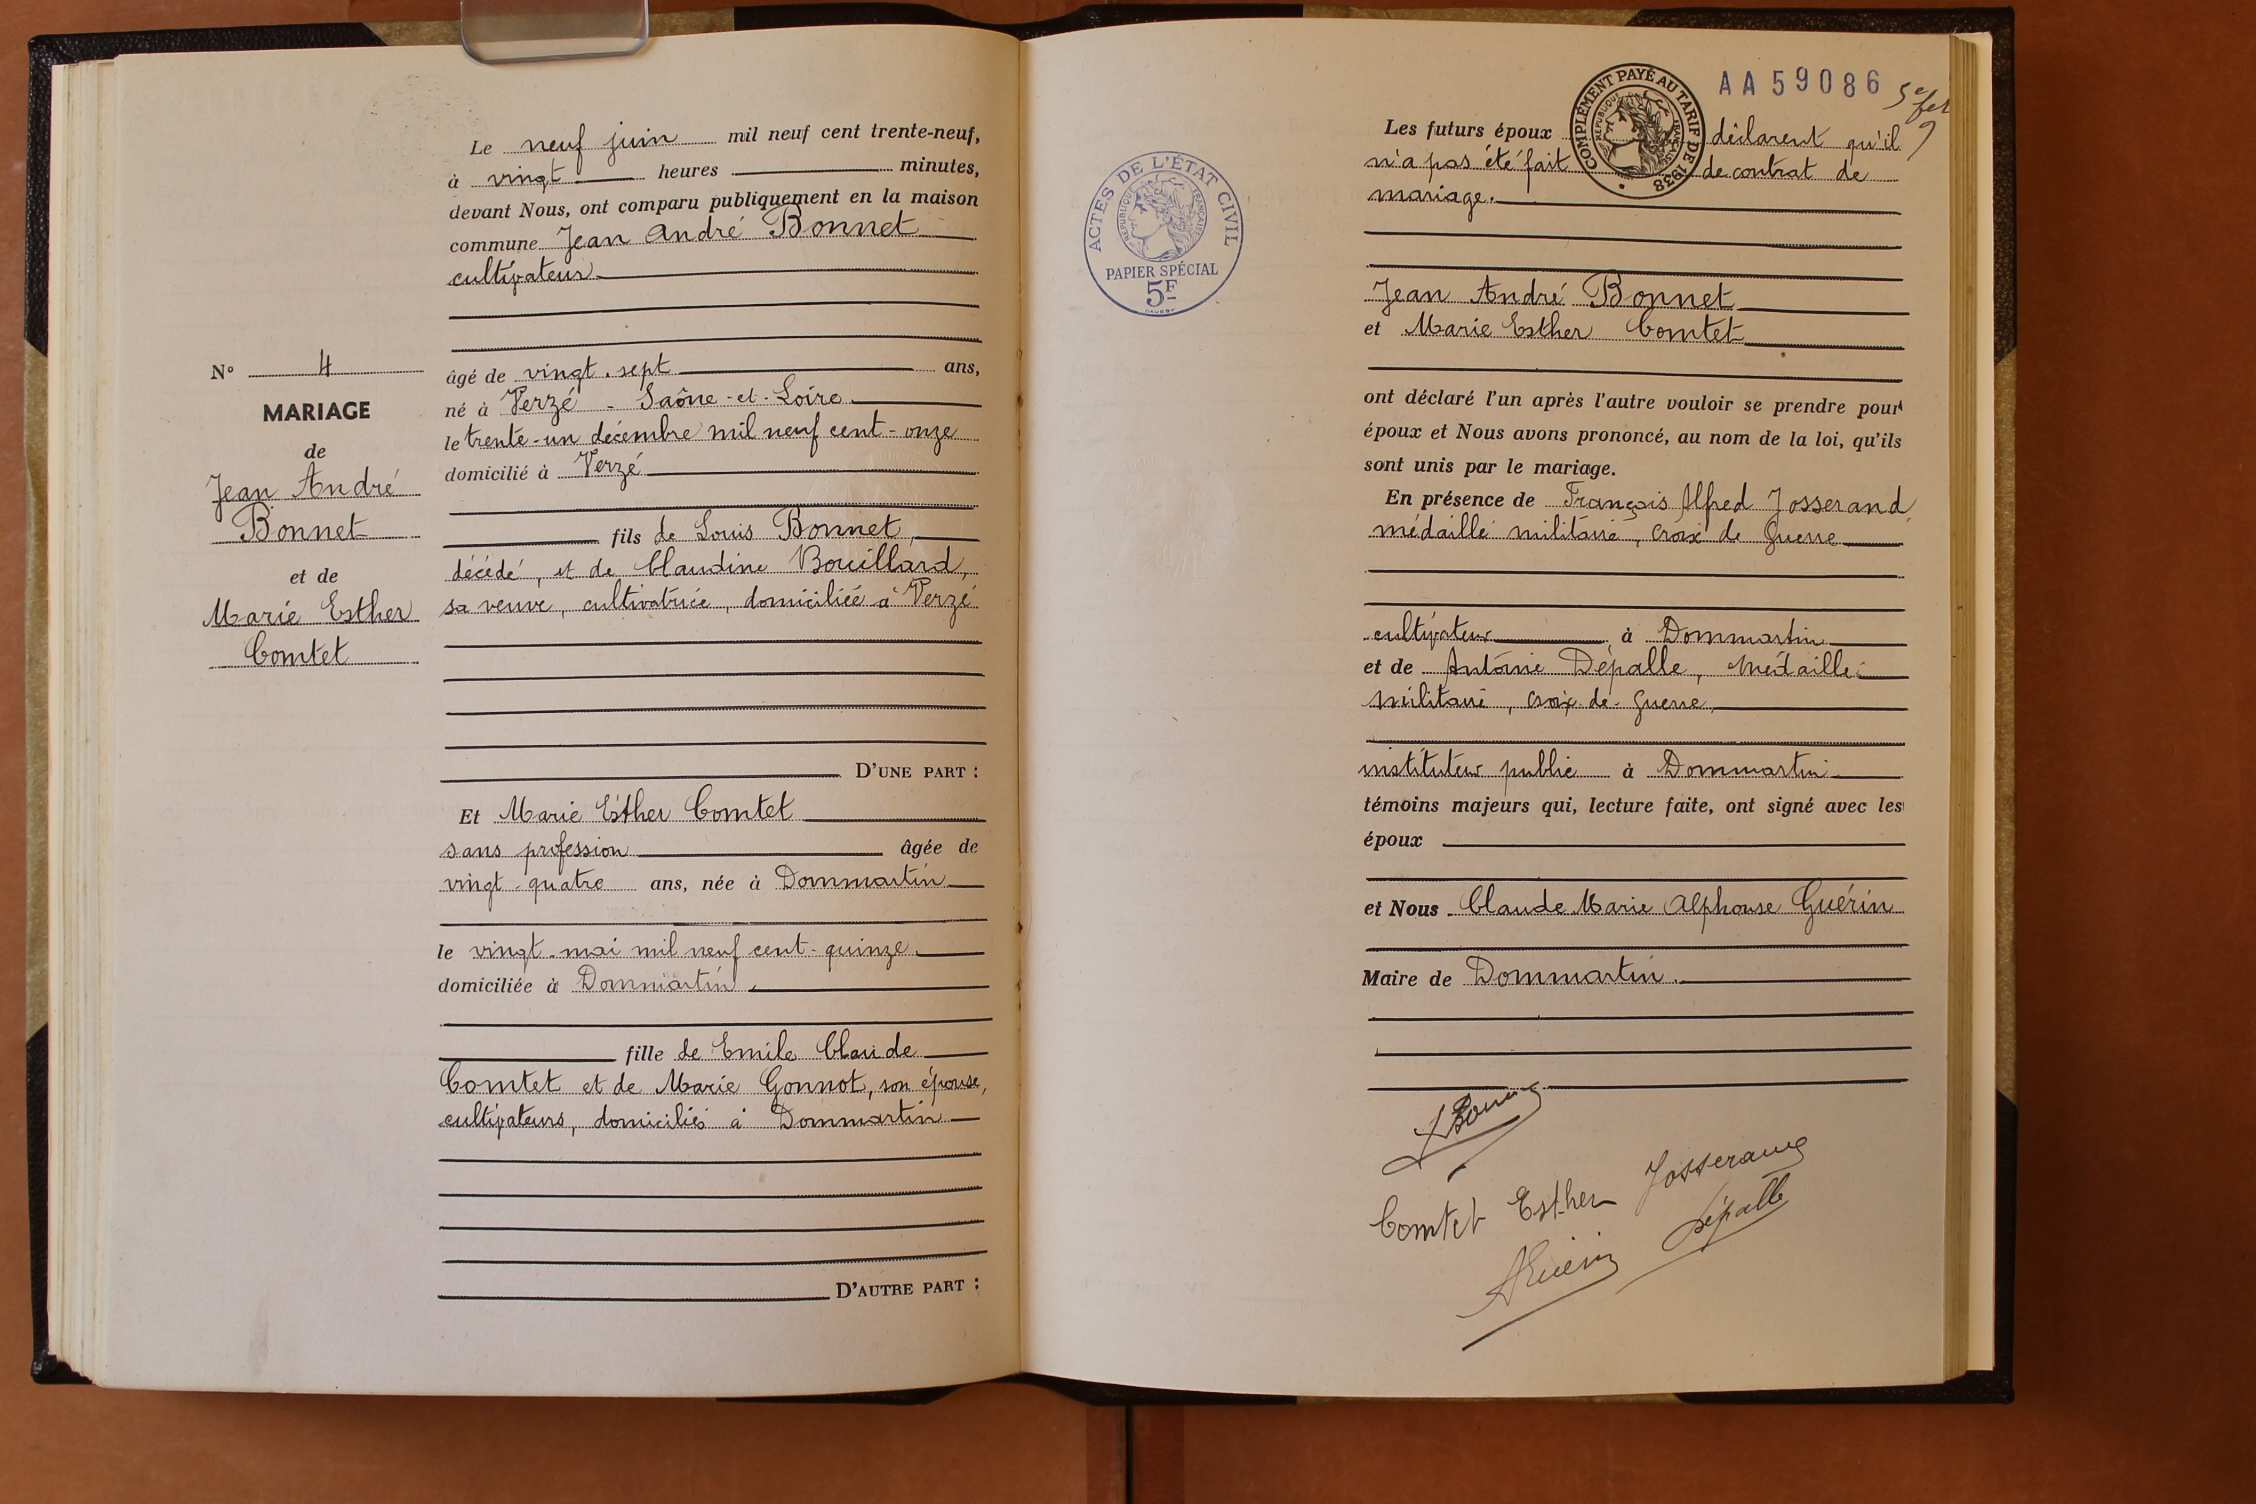 Le neuf juin mil neuf cent trente-neuf,
à vingt heures minutes,
devant Nous, ont comparu publiquement en la maison
commune Jean André Bonnet
cultivateur
N° 4
MARIAGE
de
Jean André
Bonnet
et de
Marie Esther
Comtet
âgé de vingt-sept ans,
né à Verzé - Saône-et-Loire
le trente-un décembre mil neuf cent-onze
domicilié à Verzé
fils de Louis Bonnet,
décédé, et de Claudine Bouillard,
sa veuve, cultivatrice, domiciliée à Verzé
D'UNE PART :
Et Marie Esther Comtet
sans profession âgée de
vingt-quatre ans, née à Dommartin
le vingt-mai mil neuf cent-quinze
domiciliée à Dommartin,
fille de Emile Claude
Comtet et de Marie Gonnot, son épouse,
cultivateurs, domiciliés à Dommartin
D'AUTRE PART :
ACTES DE L'ÉTAT CIVIL
RÉPUBLIQUE FRANÇAISE
PAPIER SPÉCIAL
5F
COMPLÉMENT PAYÉ AU TARIF DE 1938
RÉPUBLIQUE FRANÇAISE
AA 59086
Les futurs époux déclarent qu'il
n'a pas été fait de contrat de
mariage.
Jean André Bonnet
et Marie Esther Comtet
ont déclaré l'un après l'autre vouloir se prendre pour
époux et Nous avons prononcé, au nom de la loi, qu'ils
sont unis par le mariage.
En présence de François Alfred Josserand,
médaillé militaire, croix de Guerre
cultivateur à Dommartin
et de Antoine Dépalle, médaillé
militaire, croix-de-Guerre,
instituteur public à Dommartin
témoins majeurs qui, lecture faite, ont signé avec les
époux
et Nous Claude Marie Alphonse Guérin
Maire de Dommartin.
Comtet Esther Josserand
Dépalle
AGuérin